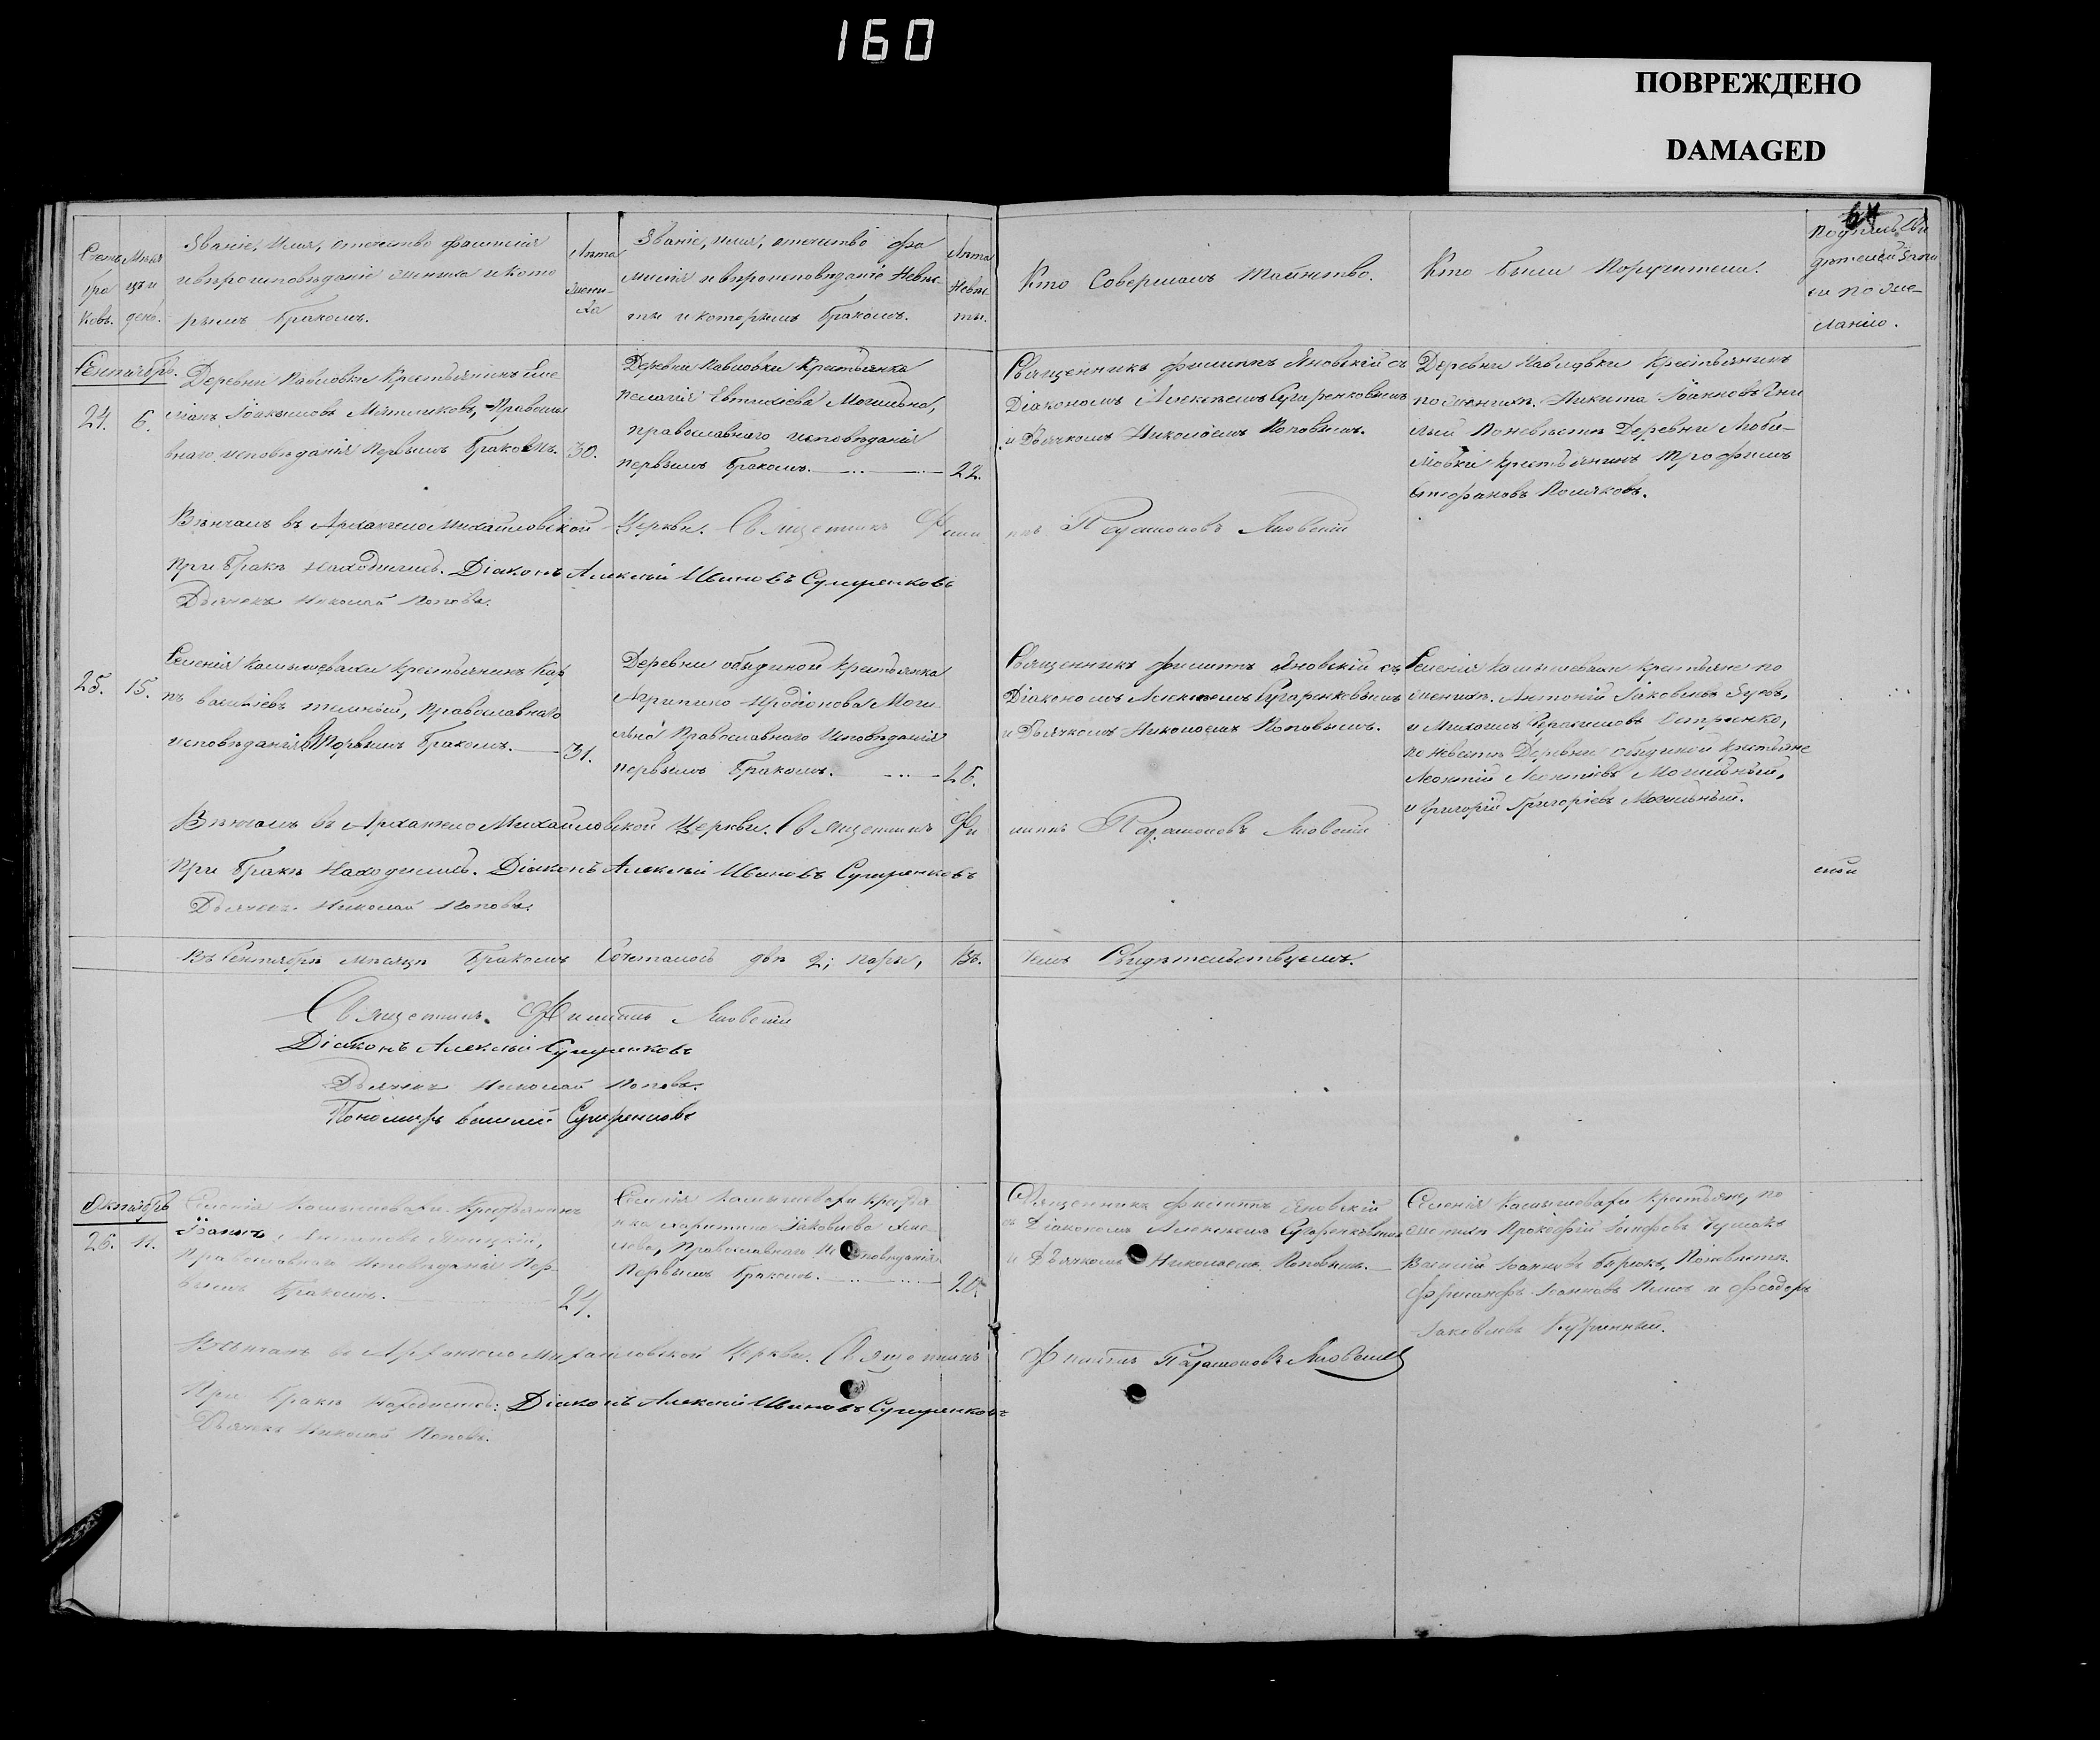 160
ПОВРЕЖДЕНО
DAMAGED
64
Счетъ
бра
ковъ.
Мѣся
цъ и
день.
Званіе, Имя, отечество фамилія
и вѣроисповѣданіе жениха и кото
рымъ бракомъ.
Лѣта
жени-
ха
Званіе, имя, отечество фа
милія и вѣроисповѣданіе Невѣс-
ты и которымъ бракомъ.
Лѣта
Невѣс-
ты.
Кто Совершалъ Таинство.
Кто были Поручители.
Подпись Сви
дѣтелей
по же-
ланію.
Сентябрь.
24.
6.
Деревни Павловки Крестьянинъ Еме
ліанъ Іоакимовъ Мѣтликовъ, Правосла
внаго исповѣданія Первымъ бракомъ.
30.
Деревни Павловки Крестьянка
Пелагія Евтихіева Могильна,
православнаго исповѣданія
первымъ бракомъ.
22.
Священникъ Филиппъ Яновскій съ
Діакономъ Алексѣемъ Сугаренковымъ
и Дьячкомъ Николаемъ Поповымъ.
Деревни Павловки Крестьянинъ
по женихѣ. Никита Іоанновъ
по невѣстѣ Деревни Люби-
мовки крестьянинъ Трофимъ
Стефановъ Поляковъ.
Вѣнчалъ въ Архангело Михайловской Церкви. Священникъ Филиппъ Парамоновъ Яновскій
При бракѣ Находились. Діаконъ Алексѣй Ивановъ Сугаренковъ
Дьячекъ Николай Поповъ.
25.
15.
Селенія Камышевахи крестьянинъ Кар
пъ Василіевъ темный, Православнаго
исповѣданія Первымъ бракомъ.
31.
Деревни обидиной крестьянка
Агрипина Иродіонова Моги
льна Православнаго Исповѣданія
первымъ бракомъ.
26.
Священникъ Филиппъ Яновскій съ
Діакономъ Алексѣемъ Сугаренковымъ
и Дьячкомъ Николаемъ Поповымъ.
Селенія Камышевахи крестьяне по
женихѣ. Антоній Іаковлевъ Зуевъ,
и Михаилъ Герасимовъ
по невѣстѣ Деревни обидиной Крестьяне
Леонтій Леонтіевъ Могильный,
и Григорій Григоріевъ Могильный.
Вѣнчалъ въ Архангело Михайловской Церкви. Священникъ Филиппъ Парамоновъ Яновскій
При бракѣ Находились. Діаконъ Алексѣй Ивановъ Сугаренковъ
Дьячекъ Николай Поповъ.
Въ Сентябрѣ мѣсяцѣ бракомъ Сочеталось двѣ 2; пары, Въ чемъ Свидѣтельствуемъ.
Священникъ Филиппъ Яновскій
Діаконъ Алексѣй Сугаренковъ
Дьячекъ Николай Поповъ.
Пономарь Василій Сугаренковъ
Октябрь
26.
11.
Селенія Камышевахи Крестьянинъ
Іоаннъ
Православнаго Исповѣданія Пер-
вымъ бракомъ.
24.
Селенія Камышевахи Крестья
нка Харитина Іаковлева
Православнаго Исповѣданія
Первымъ бракомъ.
20.
Священникъ Филиппъ Яновскій
съ Діакономъ Алексѣемъ Сугаренковымъ
и Дьячкомъ Николаемъ Поповымъ.
Селенія Камышевахи крестьяне, по
женихѣ Прокофій Іосифовъ Чумакъ
Василій Іоанновъ Бирюкъ, По невѣстѣ
Іоанновъ и Феодоръ
Іаковлевъ
Вѣнчалъ въ Архангело Михайловской Церкви. Священникъ Филиппъ Парамоновъ Яновскій
При бракѣ Находились: Діаконъ Алексѣй Ивановъ Сугаренковъ
Дьячекъ Николай Поповъ.